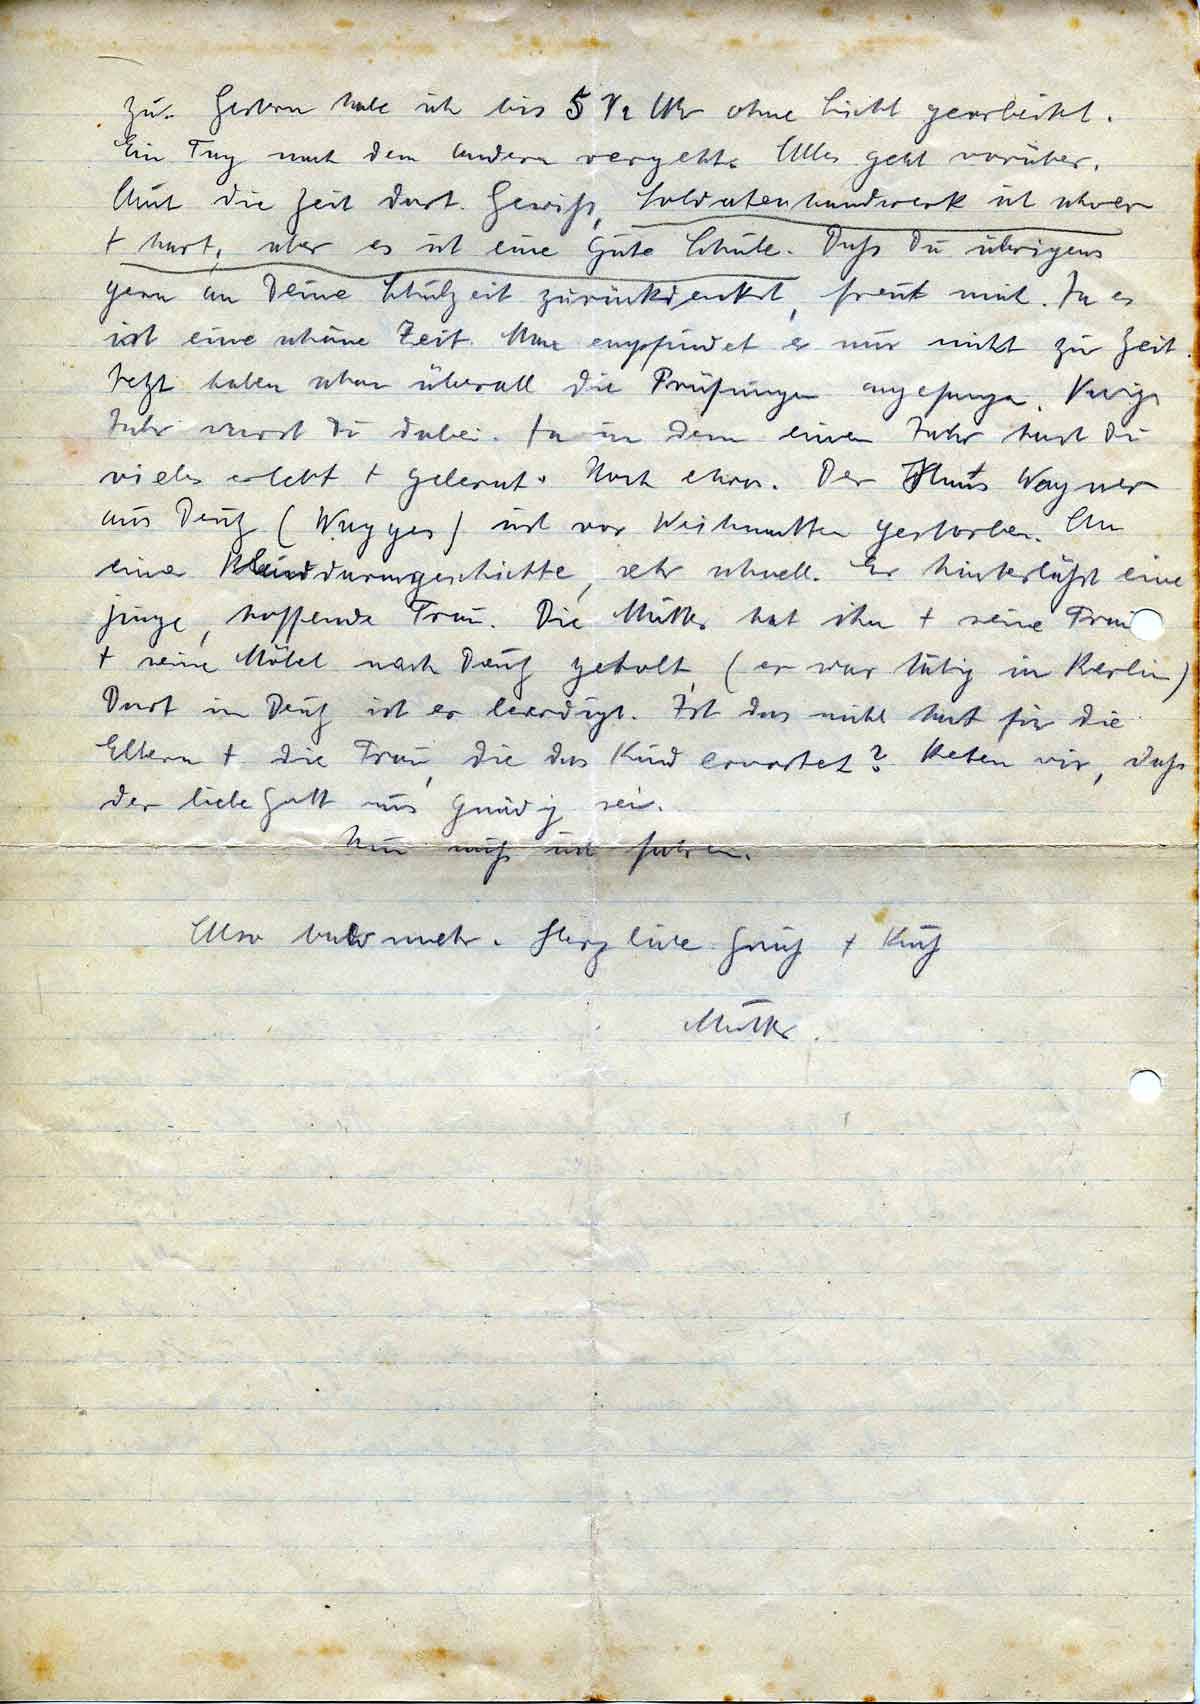 zu. Gestern habe ich bis 5 ½ Uhr ohne Licht gearbeitet.
Ein Tag nach dem andern vergeht. Alles geht vorüber.
Auch die Zeit dort. Gewiß, Soldatenhandwerk ist schwer
+ hart, aber es ist eine gute Schule. Daß Du übrigens
gern an Deine Schulzeit zurückdenkst, freut mich. Ja es
ist eine schöne Zeit. Man empfindet es nur nicht zur Zeit.
Jetzt haben schon überall die Prüfungen angefangen. Voriges
Jahr warst Du dabei. Ja in dem einen Jahr hast Du
vieles erlebt + gelernt. Noch etwas. Der Wagner
aus Deutz (Wagges) ist vor Weihnachten gestorben. An
einer Blinddarmgeschichte, sehr schnell. Er hinterläßt eine
junge, hoffende Frau. Die Mutter hat ihn + seine Frau
+ seine Möbel nach Deutz geholt (er war tätig in Berlin)
Dort in Deutz ist er beerdigt. Ist das nicht hart für die
Eltern + die Frau, die das Kind erwartet? Beten wir, daß
der liebe Gott uns gnädig sei.
Nun muß ich fahren.
Also bald mehr. Herzliche Gruß + Kuß
Mutter.